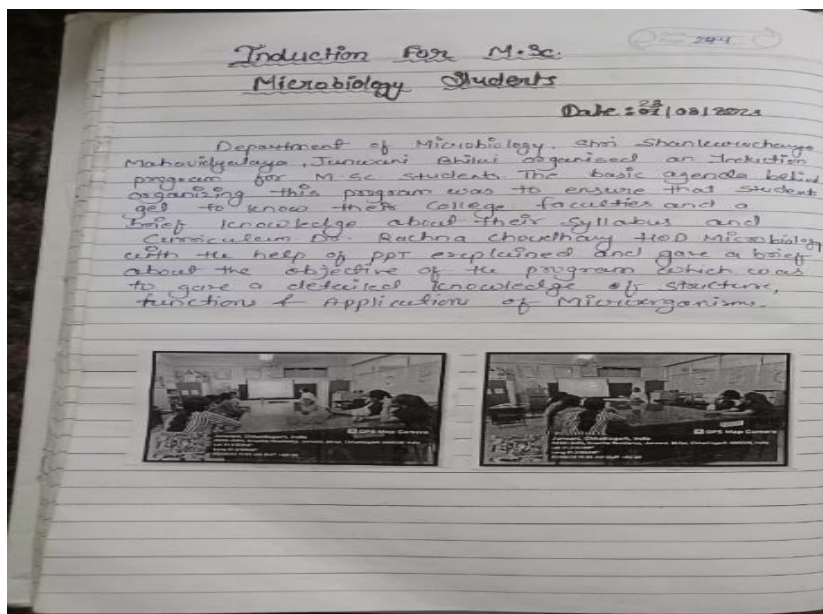 244
Induction For M.Sc.
Microbiology Students
Date : /08/202
Department of Microbiology, Shri Shankaracharya
Mahavidyalaya, Junwani Bhilai organised an Induction
program for M.Sc students. The basic agenda behind
organizing this program was to ensure that student
get to know their College faculties and a
brief knowledge about their Syllabus and
Curriculum Dr. Rachna Choudhary HOD Microbiology
with the help of PPT explained and gave a brief
about the objective of the program which was
to gave a detailed knowledge of structure,
function & Application of Microorganisms.
GPS Map Camera
Junwani, Chhattisgarh, India
GPS Map Camera
Junwani, Chhattisgarh, India